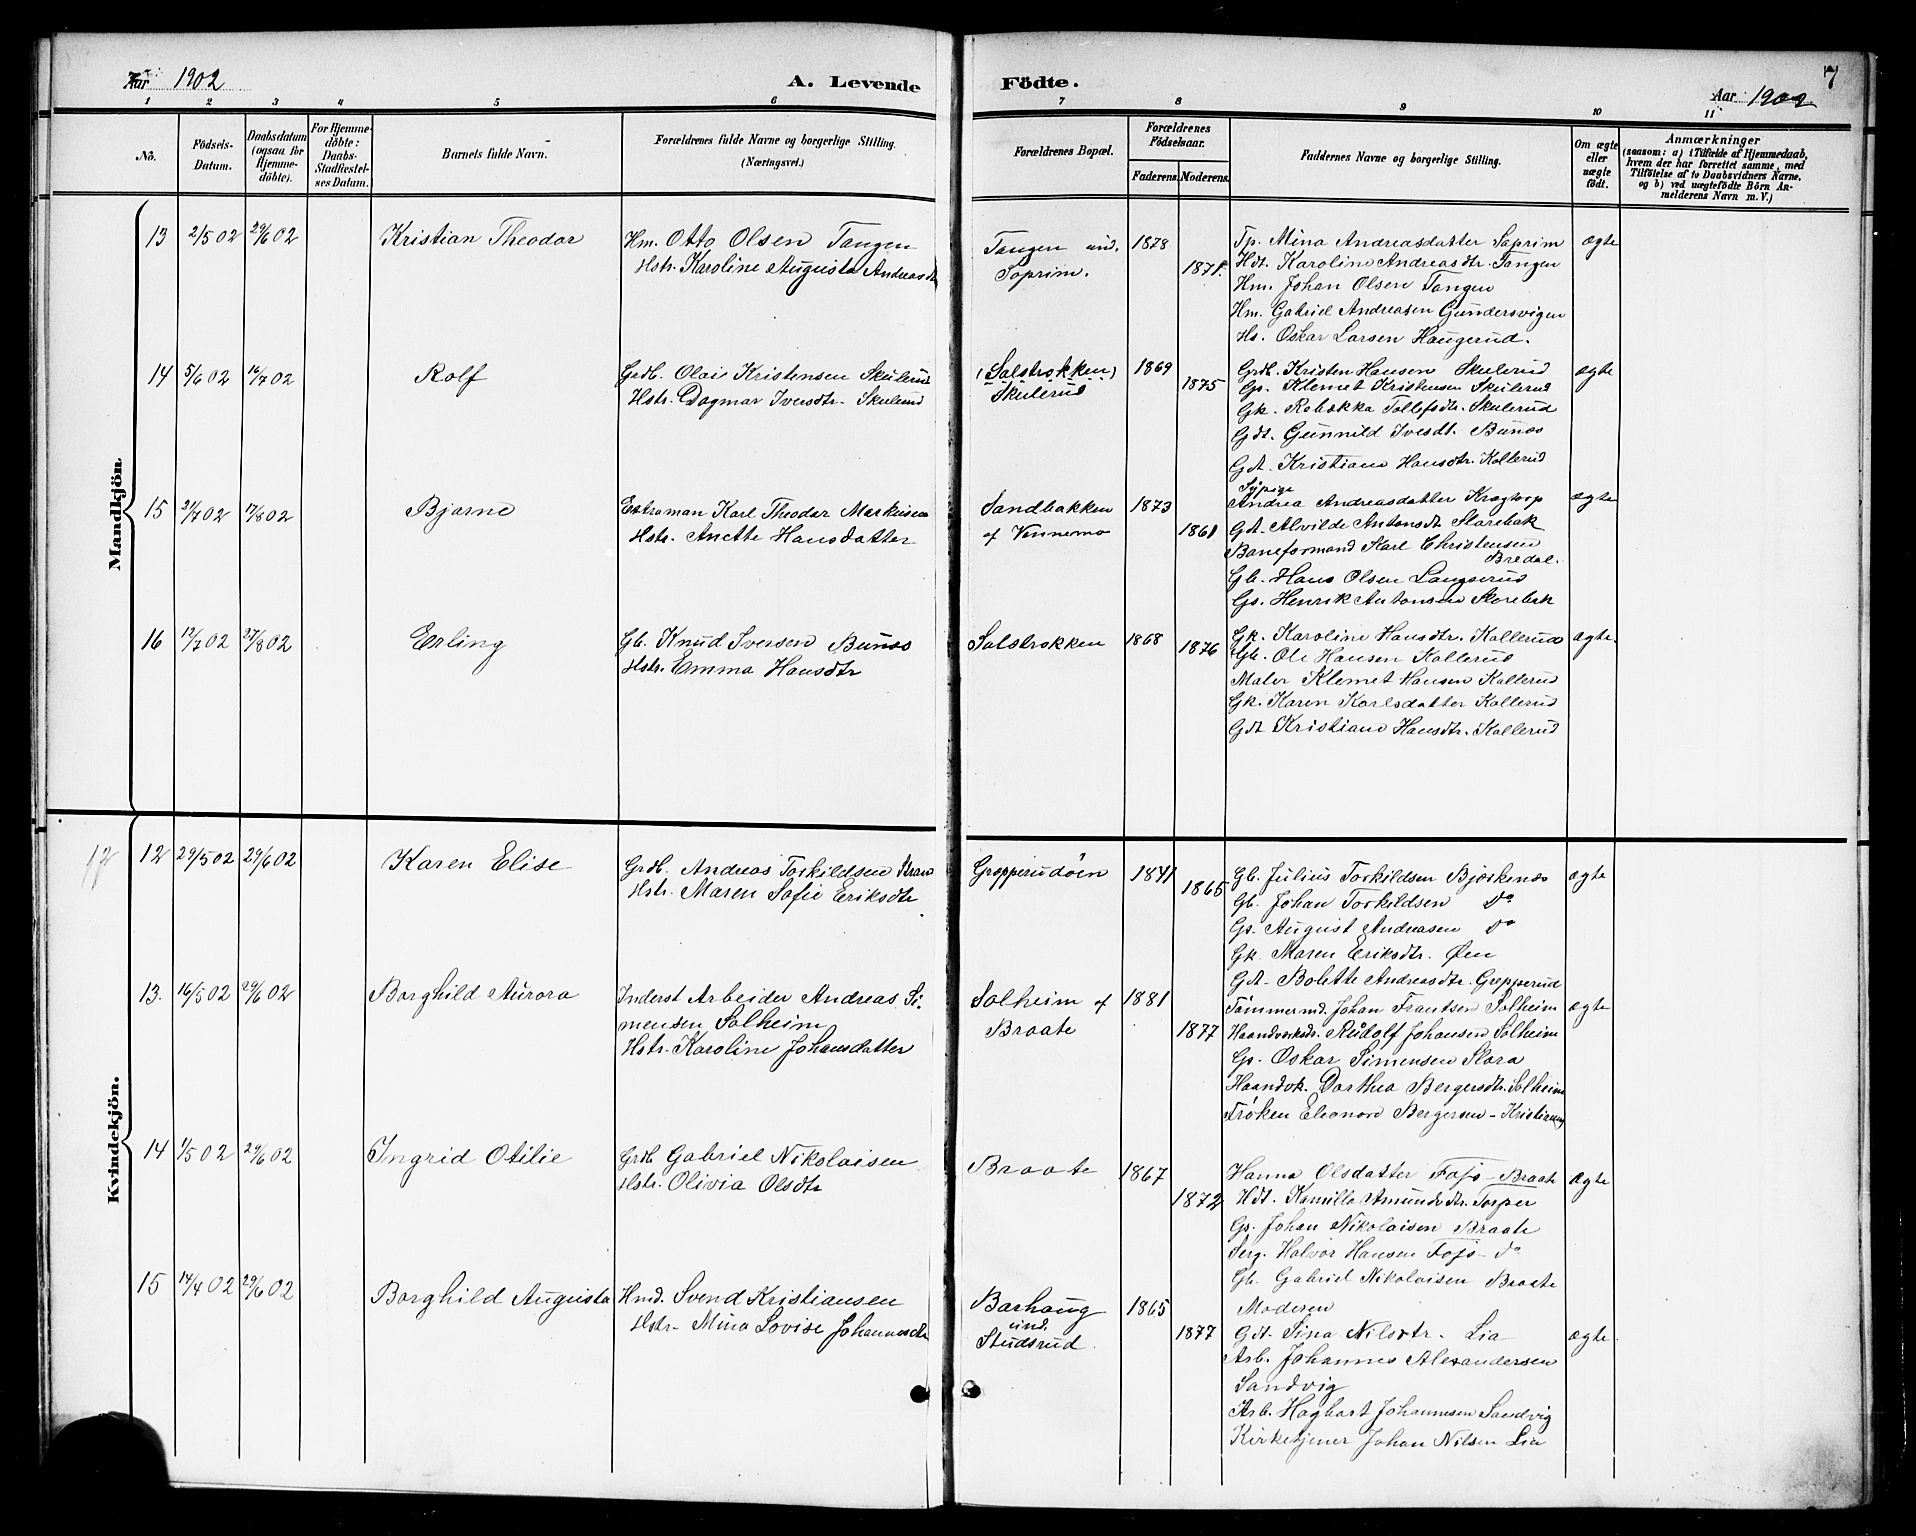 Aar 1902
A. Levende
Födte.
7
Aar 1902
1 2 3 4 5 6 7 8 9 10 11
No.
Födsels-
Datum.
Daabsdatum
(ogsaa for
Hjemme-
döbte).
For Hjemme-
döbte:
Daabs-
Stadfæstel-
ses Datum.
Barnets fulde Navn.
Forældrenes fulde Navne og borgerlige Stilling.
(Næringsvei.)
Forældrenes Bopæl.
Forældrenes
Födselsaar.
Faderens.
Moderens.
Faddernes Navne og borgerlige Stilling.
Om ægte
eller
uægte
födt.
Anmærkninger
(saasom: a) i Tilfælde af Hjemmedaab,
hvem der har forrettet samme, med
Tilföielse af to Daabsvidners Navne,
og b) ved uægtefödte Börn An-
melderens Navn m. V.)
Mandkjön.
13 2/5 02 29/6 02 Kristian Theodor
Hm. Otto Olsen Tangen
Hstr. Karoline Augusta Andreasdtr
Tangen und.
Soprim.
1878
1871.
Tp. Mina Andreasdatter Soprim
Hdt. Karoline Andreasdtr. Tangen
Hm. Johan Olsen Tangen
Hm. Gabriel Andreasen Gundersvigen
Hs. Oskar Larsen Haugerud.
ægte
14 5/6 02 16/7 02 Rolf
Grdb. Olai Kristensen Skulerud
Hstr. Dagmar Iversdtr. Skulerud
(Solstrokken)
Skulerud
1869
1875
Grdb. Kristen Hansen Skulerud
Gs. Klemet Kristensen Skulerud
Gk. Rebekka Tollefsdtr. Skulerud
Gdt. Gunnild Ivesdt. Bunes
Gdt. Kristiane Hansdtr. Kollerud
ægte
15 2/7 02 17/8 02 Bjarne
Extraman Karl Theodor Markusen
Hstr. Anette Hansdatter
Sandbakken
af Vennemo
1873
1861
Sypige
Andrea Andreasdatter Kragtorp
Gdt. Alvilde Antonsdt Storebæk
Baneformand Karl Christensen
Bredal.
Gb. Hans Olsen Langserud
Gs. Henrik Antonsen Storebæk
ægte
16 12/7 02 27/8 02 Erling
Gb. Knud Iversen Bunes
Hstr. Emma Hansdtr
Solstrokken
1868
1876
Gk. Karoline Hansdtr. Kollerud
Gb. Ole Hansen Kollerud
Maler Klemet Hansen Kollerud
Gk. Karen Karlsdatter Kollerud
Gdt Kristiane Hansdtr. Kollerud
ægte.
Kvindekjön.
12
12 29/5 02 29/6 02 Karen Elise
Grdb. Andreas Torkildsen
Hstr. Maren Sofie Eriksdtr
Grepperudøen
1841
1865
Gb. Julius Torkildsen Bjørkenes
Gb. Johan Torkildsen do
Gs. August Andreasen do
Gk. Maren Eriksdtr. Øen
Gdt. Bolette Andreasdtr. Grepperud
ægte
13. 16/5 02 29/6 02 Borghild Aurora
Inderst Arbeider Andreas Si-
mensen Solheim
Hstr. Karoline Johansdatter
Solheim af
Braate
1881
1877
Tømmermd. Johan Frantsen Solheim
Haandverksdr. Rudolf Johansen Solheim
Gs. Oskar Simensen Slora
Haandvk. Dorthea Bergersdtr. Solheim
Frøken Eleonore Bergersen - Kristiania
ægte
14 1/5 02 29/6 02 Ingrid Otilie
Grdb Gabriel Nikolaisen
Hstr. Olivia Olsdtr
Braate
1867
1872
Hanna Olsdatter Fojs - Braate
Hdt. Kamilla Amundsdtr. Torper
Gs. Johan Nikolaisen Braate
Serg. Halvor Hansen Fojs - do
Gb. Gabriel Nikolaisen Braate
ægte
15 14/4 02 29/6 02 Borghild Augusta
Hmd. Svend Kristiansen
Hstr. Mina Lovise Johannesdtr
Barhaug
und.
Studsrud.
1865
1877
Moderen
Gdt. Sina Nilsdtr. Lia
Arb. Johannes Alexandersen
Sandvig
Arb. Hagbart Johannesen Sandvig
Kirketjener Johan Nilsen Lia
ægte